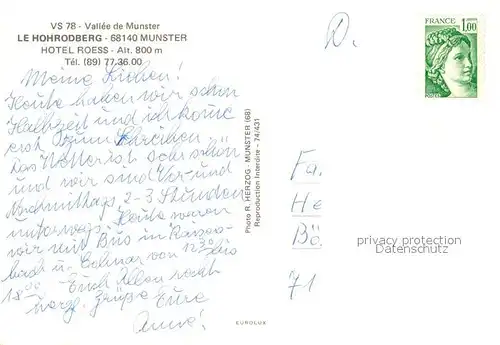 VS 78 - Vallée de Munster
LE HOHRODBERG - 68140 MUNSTER
HOTEL ROESS - Alt. 800 m
Tél. (89) 77.36.00
Meine Lieben!
Heute haben wir schon
Halbzeit und ich komme
erst zum Schreiben.
Das Wetter ist sehr schön
und wir sind Vor- und
Nachmittags, 2-3 Stunden
unterwegs. Heute waren
wir mit Bus in
bach u. Colmar von 12 30 bis
18 00. Euch Allen noch
herzl. Grüße Eure
Anna!
Photo R. HERZOG - MUNSTER (68)
Reproduction Interdite - 74/431
EUROLUX
D.
FRANCE
1,00
Fa.
He
Bö
71
privacy protection
Datenschutz